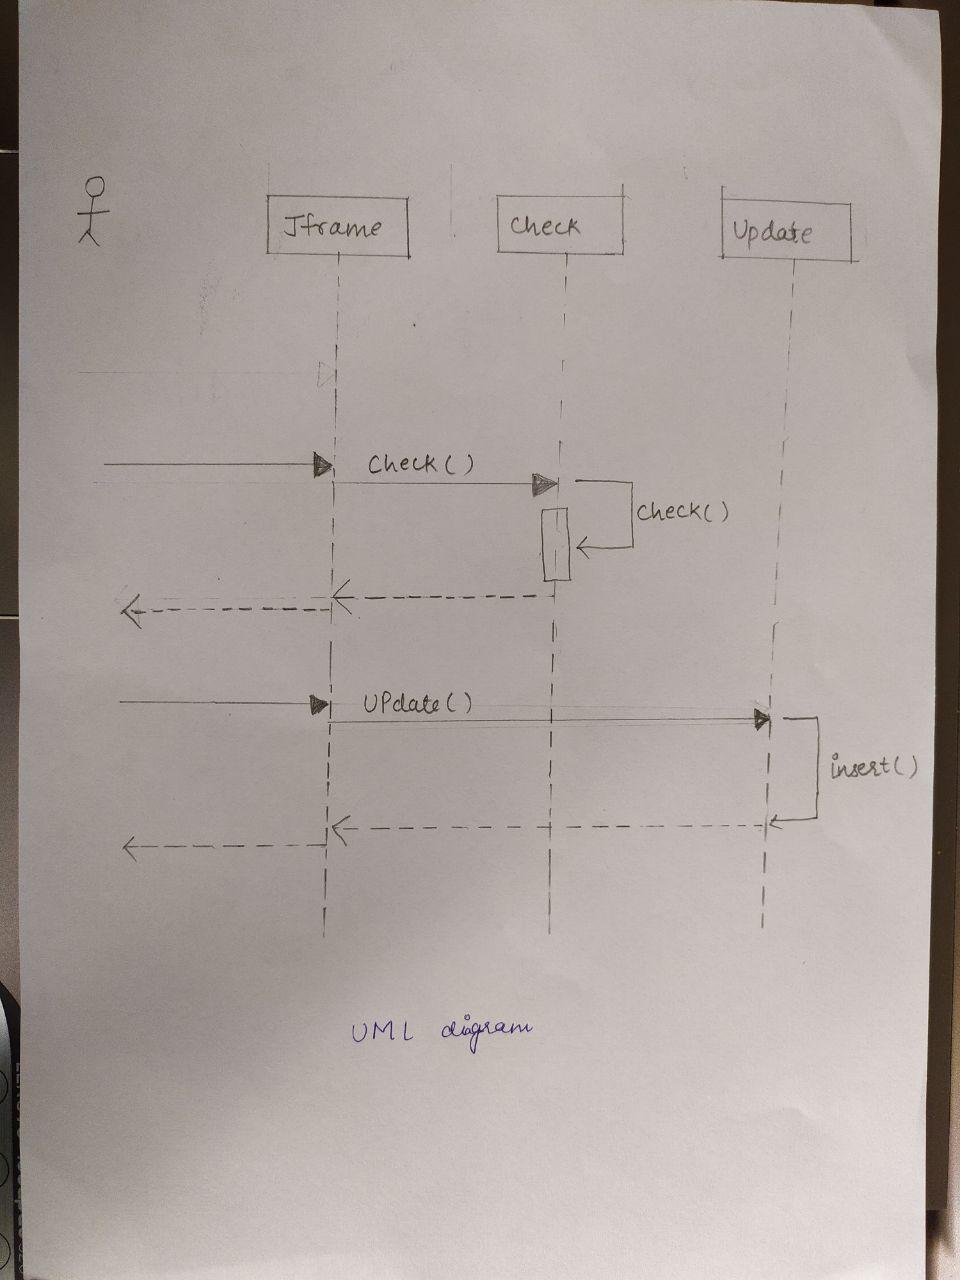 Jframe
Check
Update
Check()
Check()
UPdate()
insert()
UML diagram